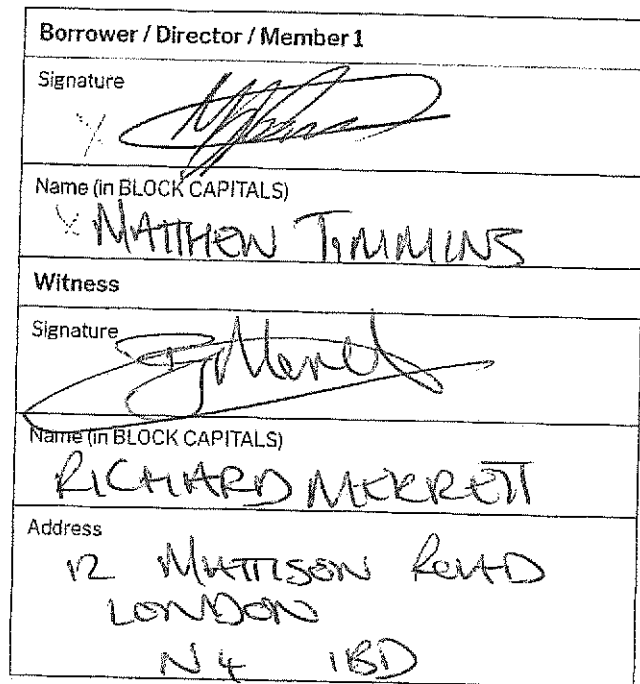 Borrower / Director / Member 1
Signature
X
Name (in BLOCK CAPITALS)
X MATTHEW TIMMINS
Witness
Signature
Name (in BLOCK CAPITALS)
RICHARD MERRETT
Address
12 MATTISON ROAD
LONDON
N4 1BD